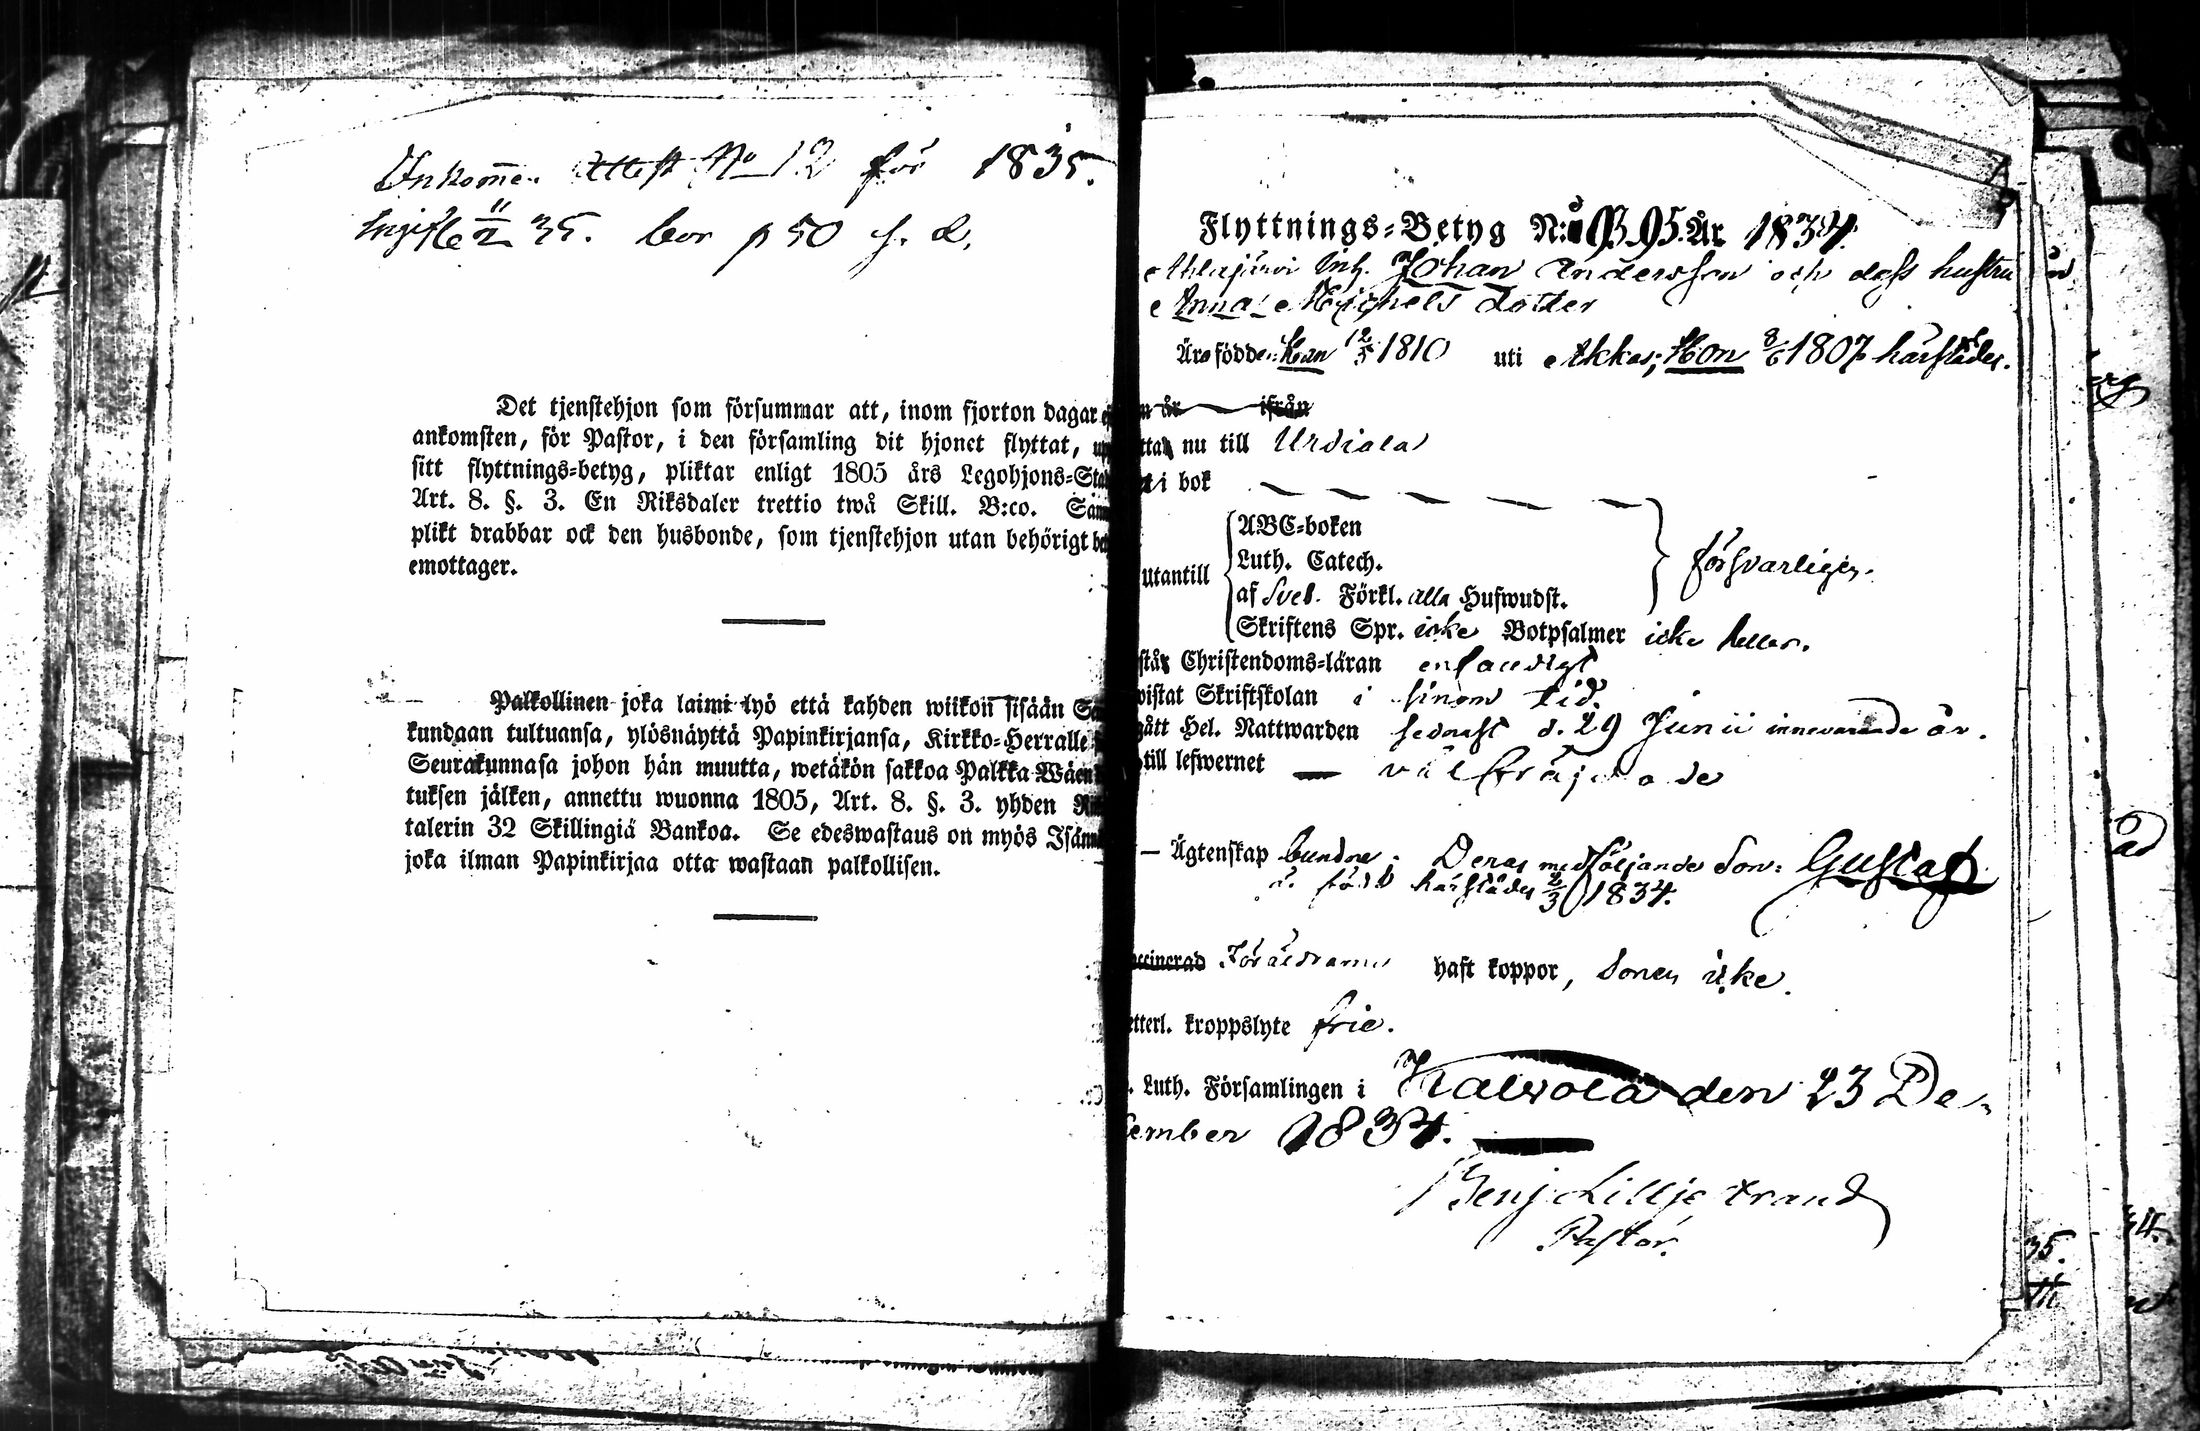 Inkommen Attest No 12 för 1835.
Ingifle 11/2 35. bor p 50 s. d.
Det tjenstehjon som försummar att, inom fjorton dagar
ankomsten, för Pastor, i den församling dit hjonet flyttat,
sitt flyttnings-betyg, pliktar enligt 1805 års Legohjons-Sta
Art. 8. §. 3. En Riksdaler trettio twå Skill. B:co. Sam
plikt drabbar ock den husbonde, som tjenstehjon utan behörigt be
emottager.
Palkollinen joka laimi lyö että kahden wiikon sisään S
kundaan tultuansa, ylösnäyttä Papinkirjansa, Kirkko-Herralle
Seurakunnasa johon hän muutta, wetäkön sakkoa Palkka-Wäen
tuksen jälken, annettu wuonna 1805, Art. 8. §. 3. yhden Ri
talerin 32 Skillingiä Bankoa. Se edeswastaus on myös Isänn
joka ilman Papinkirjaa otta wastaan palkollisen.
Flyttnings-Betyg N:o 95. År 1834.
Inh. Johan Andersson och dess hustru
Anna Michels dotter
Äro födde: Han 12/5 1810 uti Akkas; Hon 8/6 1807 härstädes.
m år ifrån
ttat nu till Urdiala
i bok
ABC-boken
Luth. Catech.
utantill försvarligen.
af Sveb. Förkl. alla Hufwudst.
Skriftens Spr. icke Botpsalmer icke heller.
står Christendoms-läran enfaldigt
wistat Skriftskolan i sinom tid.
gått Hel. Nattwarden sednast d. 29 Junii innevarande år.
till lefwernet välfräjdade
Ägtenskap bundne. Deras medföljande Son: Gustaf
är född härstädes 2/3 1834.
ccinerad Föräldrarne haft koppor, Sonen icke.
etterl. kroppslyte frie.
. Luth. Församlingen i Kalvola den 23 De-
cember 1834.
Benj. Lilljestrand
Pastor.